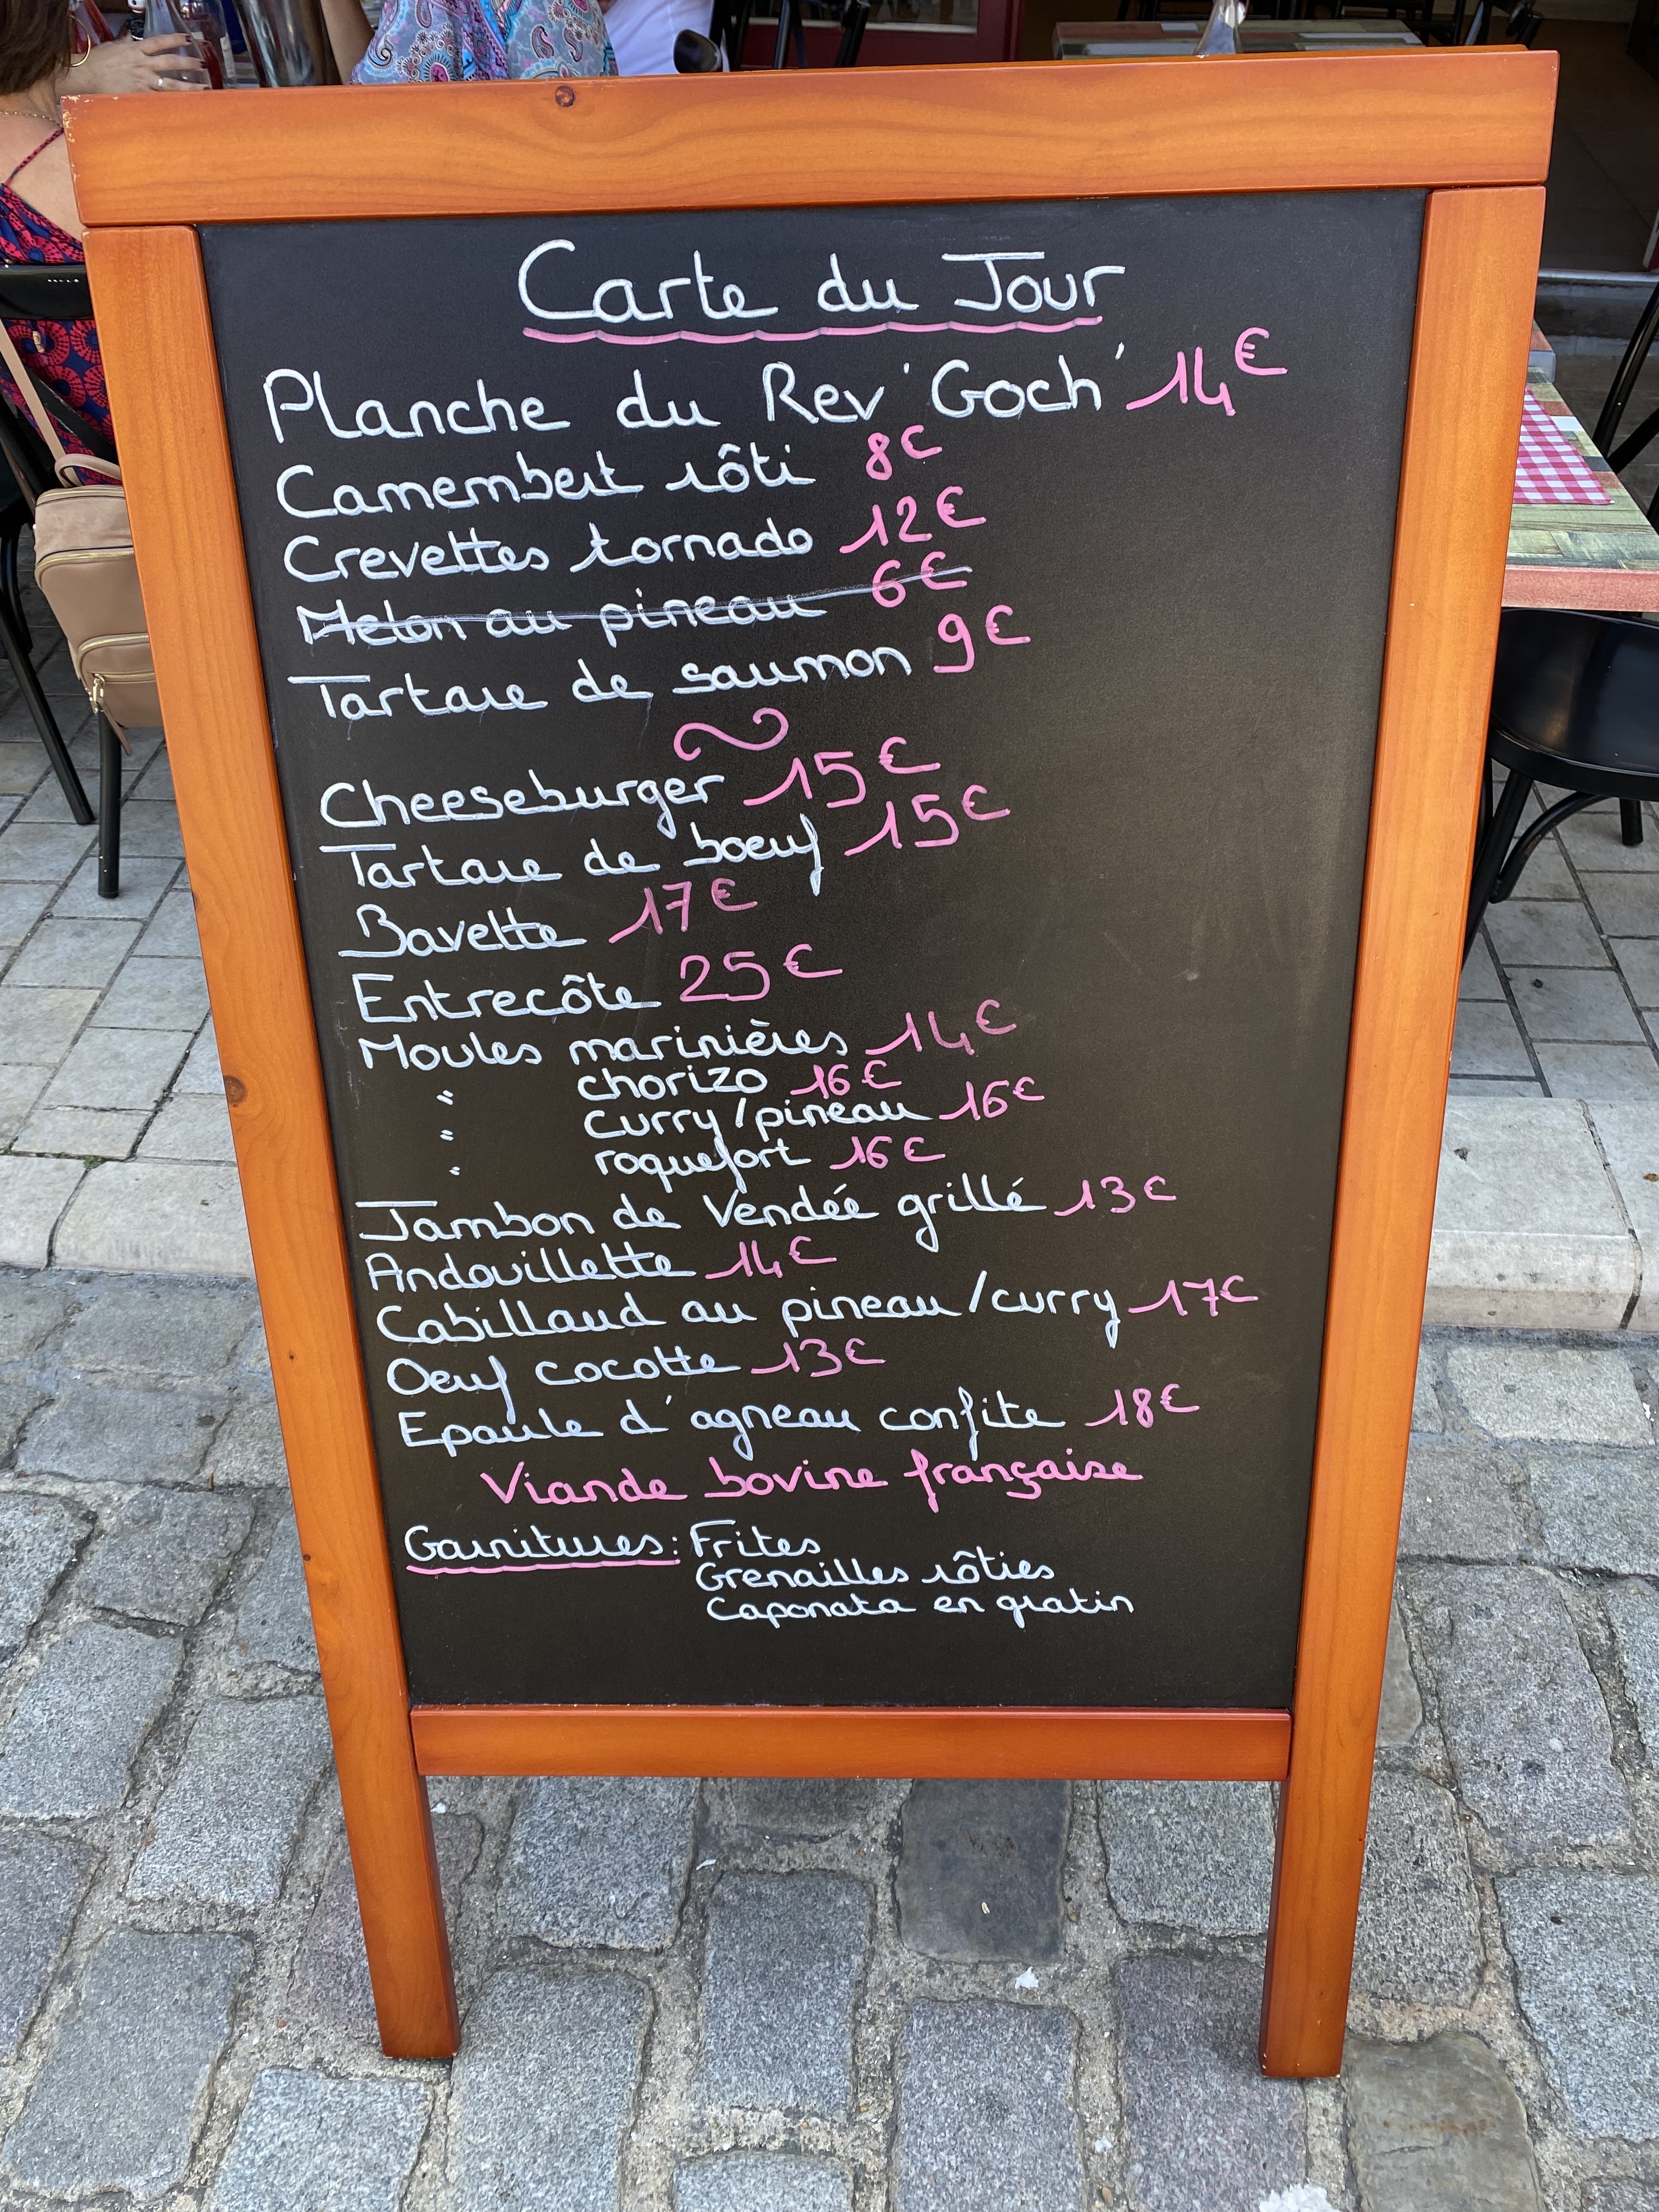 Carte du Jour
Planche du Rev 'Goch' 14€
Camembert rôti 8€
Crevettes tornado 12€
Melon au pineau 6€
Tartare de saumon 9€
Cheeseburger 15€
Tartare de boeuf 15€
Bavette 17€
Entrecôte 25€
Moules marinières 14€
" chorizo 16€
" curry/pineau 16€
" roquefort 16€
Jambon de Vendée grillé 13€
Andouillette 14€
Cabillaud au pineau/curry 17€
Oeuf cocotte 13€
Epaule d'agneau confite 18€
Viande bovine française
Garnitures: Frites
Grenailles rôties
Caponata en gratin